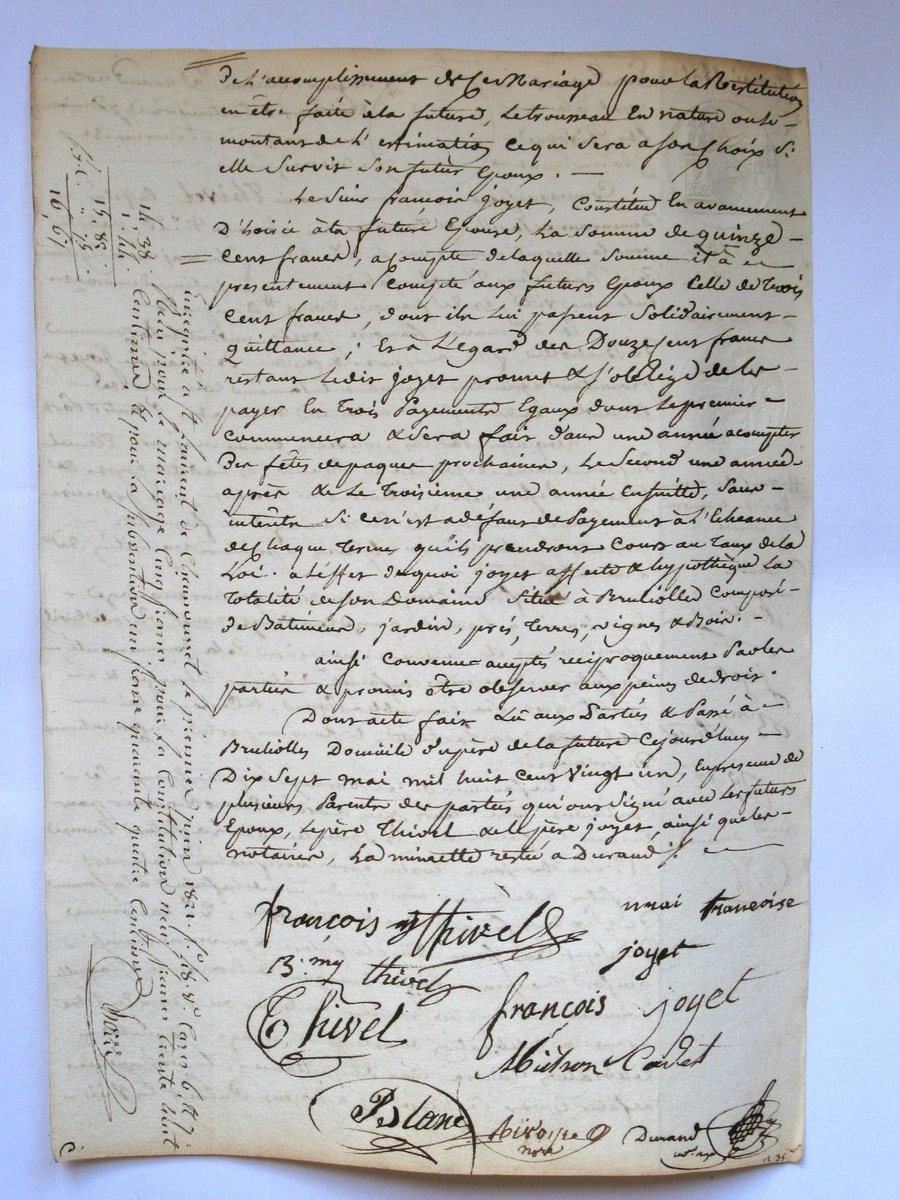 de l'accomplissement de ce Mariage pour la Restitution
en être faite à la future, Le trousseau En nature ou Le
montant de l'estimation ce qui Sera a Son Choix Si
elle Survit Son futur Epoux. —
Le Sieur françois joyet, Constitue En avancement
D'hoirie à la future Epouse, La Somme de quinze
Cent francs, a compte de laquelle Somme il à
presentement Compté aux futurs Epoux Celle de trois
Cent francs, dont ils Lui passent Solidairement
quittance ; Et à L'égard des Douze Cent francs
restant Ledit joyet promet & s'oblige de les
payer En trois Payements Egaux dont le premier
Commencera & Sera fait dans une année a compter
Des fêtes de paques prochaines, Le Second une année
après & Le troisieme une année Ensuitte, Sans
intérêts Si ce n'est a défaut de Payement à l'Echeance
de Chaque termes qu'ils prendront Cours au Taux de la
Loi. a L'effet de quoi joyet affecte & hypothèque La
totalité de Son Domaine Situé à Brulliolles Composé
de Batiments, jardin, prés, terres, vignes & Bois. —
ainsi Convenu accepté réciproquement Par les
parties & promis être observer aux peines de droit.
Dont acte fait Lû aux Parties & Passé à
Brulliolles Domicile du père de la future Cejourd'huy
Dix Sept mai mil huit Cent Vingt un, En presence de
plusieurs Parents des parties qui ont Signé avec Les futurs
Epoux, Le père Thivel & le père joyet, ainsi que les
notaires, La minutte restée a Durand ./.
françois Thivel
mai francoise
joyet
B.my thivel
Thivel
françois joyet
Cadet
Blanc
notre
Durand
Enregistré à St Laurent de Chamousset le premier juin 1821. f.º 68. Vº Cases 6, &
Reçu pour le mariage Cinq francs pour la Constitution neuf francs trente huit
Centimes et pour la Subvention un franc quarante quatre Centimes
14, 38.
1, 44
15, 82
16, 61